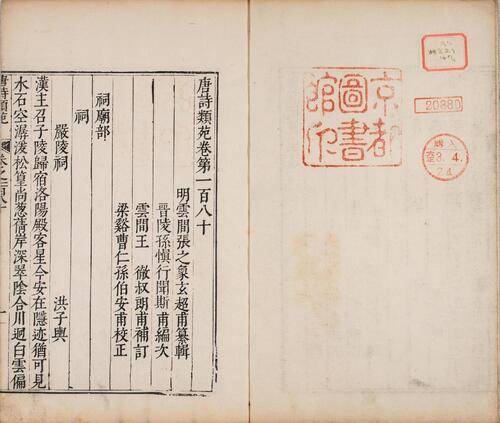 京都
圖書
館印
20880
購入
3.4.
24
唐詩類苑卷第一百八十
明雲間張之象玄超甫纂輯
晉陵孫愼行聞斯甫編次
雲間王徹叔朗甫補訂
梁谿曹仁孫伯安甫校正
祠廟部
祠
嚴陵祠 洪子輿
漢主召子陵歸宿洛陽殿客星今安在隱迹猶可見
水石空潺湲松篁尚葱蒨岸深翠陰合川迴白雲徧
唐詩類苑